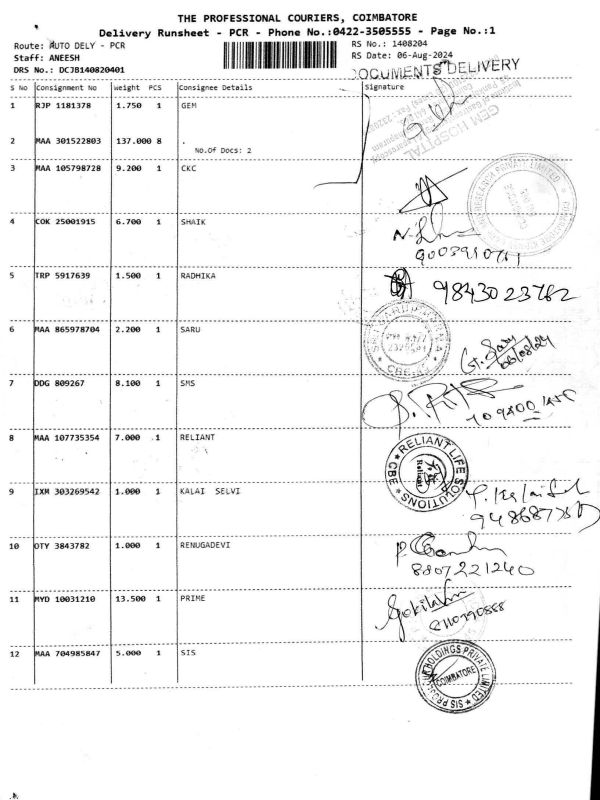 THE PROFESSIONAL COURIERS, COIMBATORE
Delivery Runsheet - PCR - Phone No.:0422-3505555 - Page No.:1
Route: AUTO DELY - PCR
RS No.: 1408204
Staff: ANEESH
RS Date: 06-Aug-2024
DRS No.: DCJB140820401
DOCUMENTS DELIVERY
S No Consignment No Weight PCS Consignee Details Signature
1 RJP 1181378 1.750 1 GEM
GEM HOSPITAL
2 MAA 301522803 137.000 8 .
No.Of Docs: 2
3 MAA 105798728 9.200 1 CKC
4 COK 25001915 6.700 1 SHAIK
5 TRP 5917639 1.500 1 RADHIKA
9843023762
6 MAA 865978704 2.200 1 SARU
06/08/24
7 DDG 809267 8.100 1 SMS
8 MAA 107735354 7.000 1 RELIANT
RELIANT LIFE SOLUTIONS
CBE
9 IXM 303269542 1.000 1 KALAI SELVI
10 OTY 3843782 1.000 1 RENUGADEVI
8807221240
11 MYD 10031210 13.500 1 PRIME
Gokila
12 MAA 704985847 5.000 1 SIS
HOLDINGS PRIVATE LIMITED
COIMBATORE